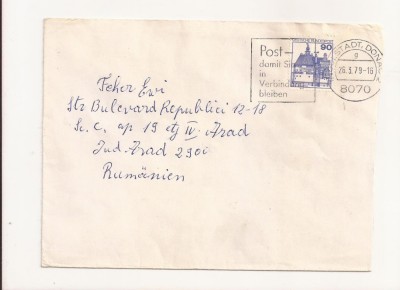 Post-
damit Sie
in
Verbindung
bleiben
90
STADT, DONAU
g
26.3.79-16
8070
Feher Evi
Str Bulevard Republici 12-18
Sc. C, ap 19 etj IV, Arad
Jud. Arad 2900
Rumänien